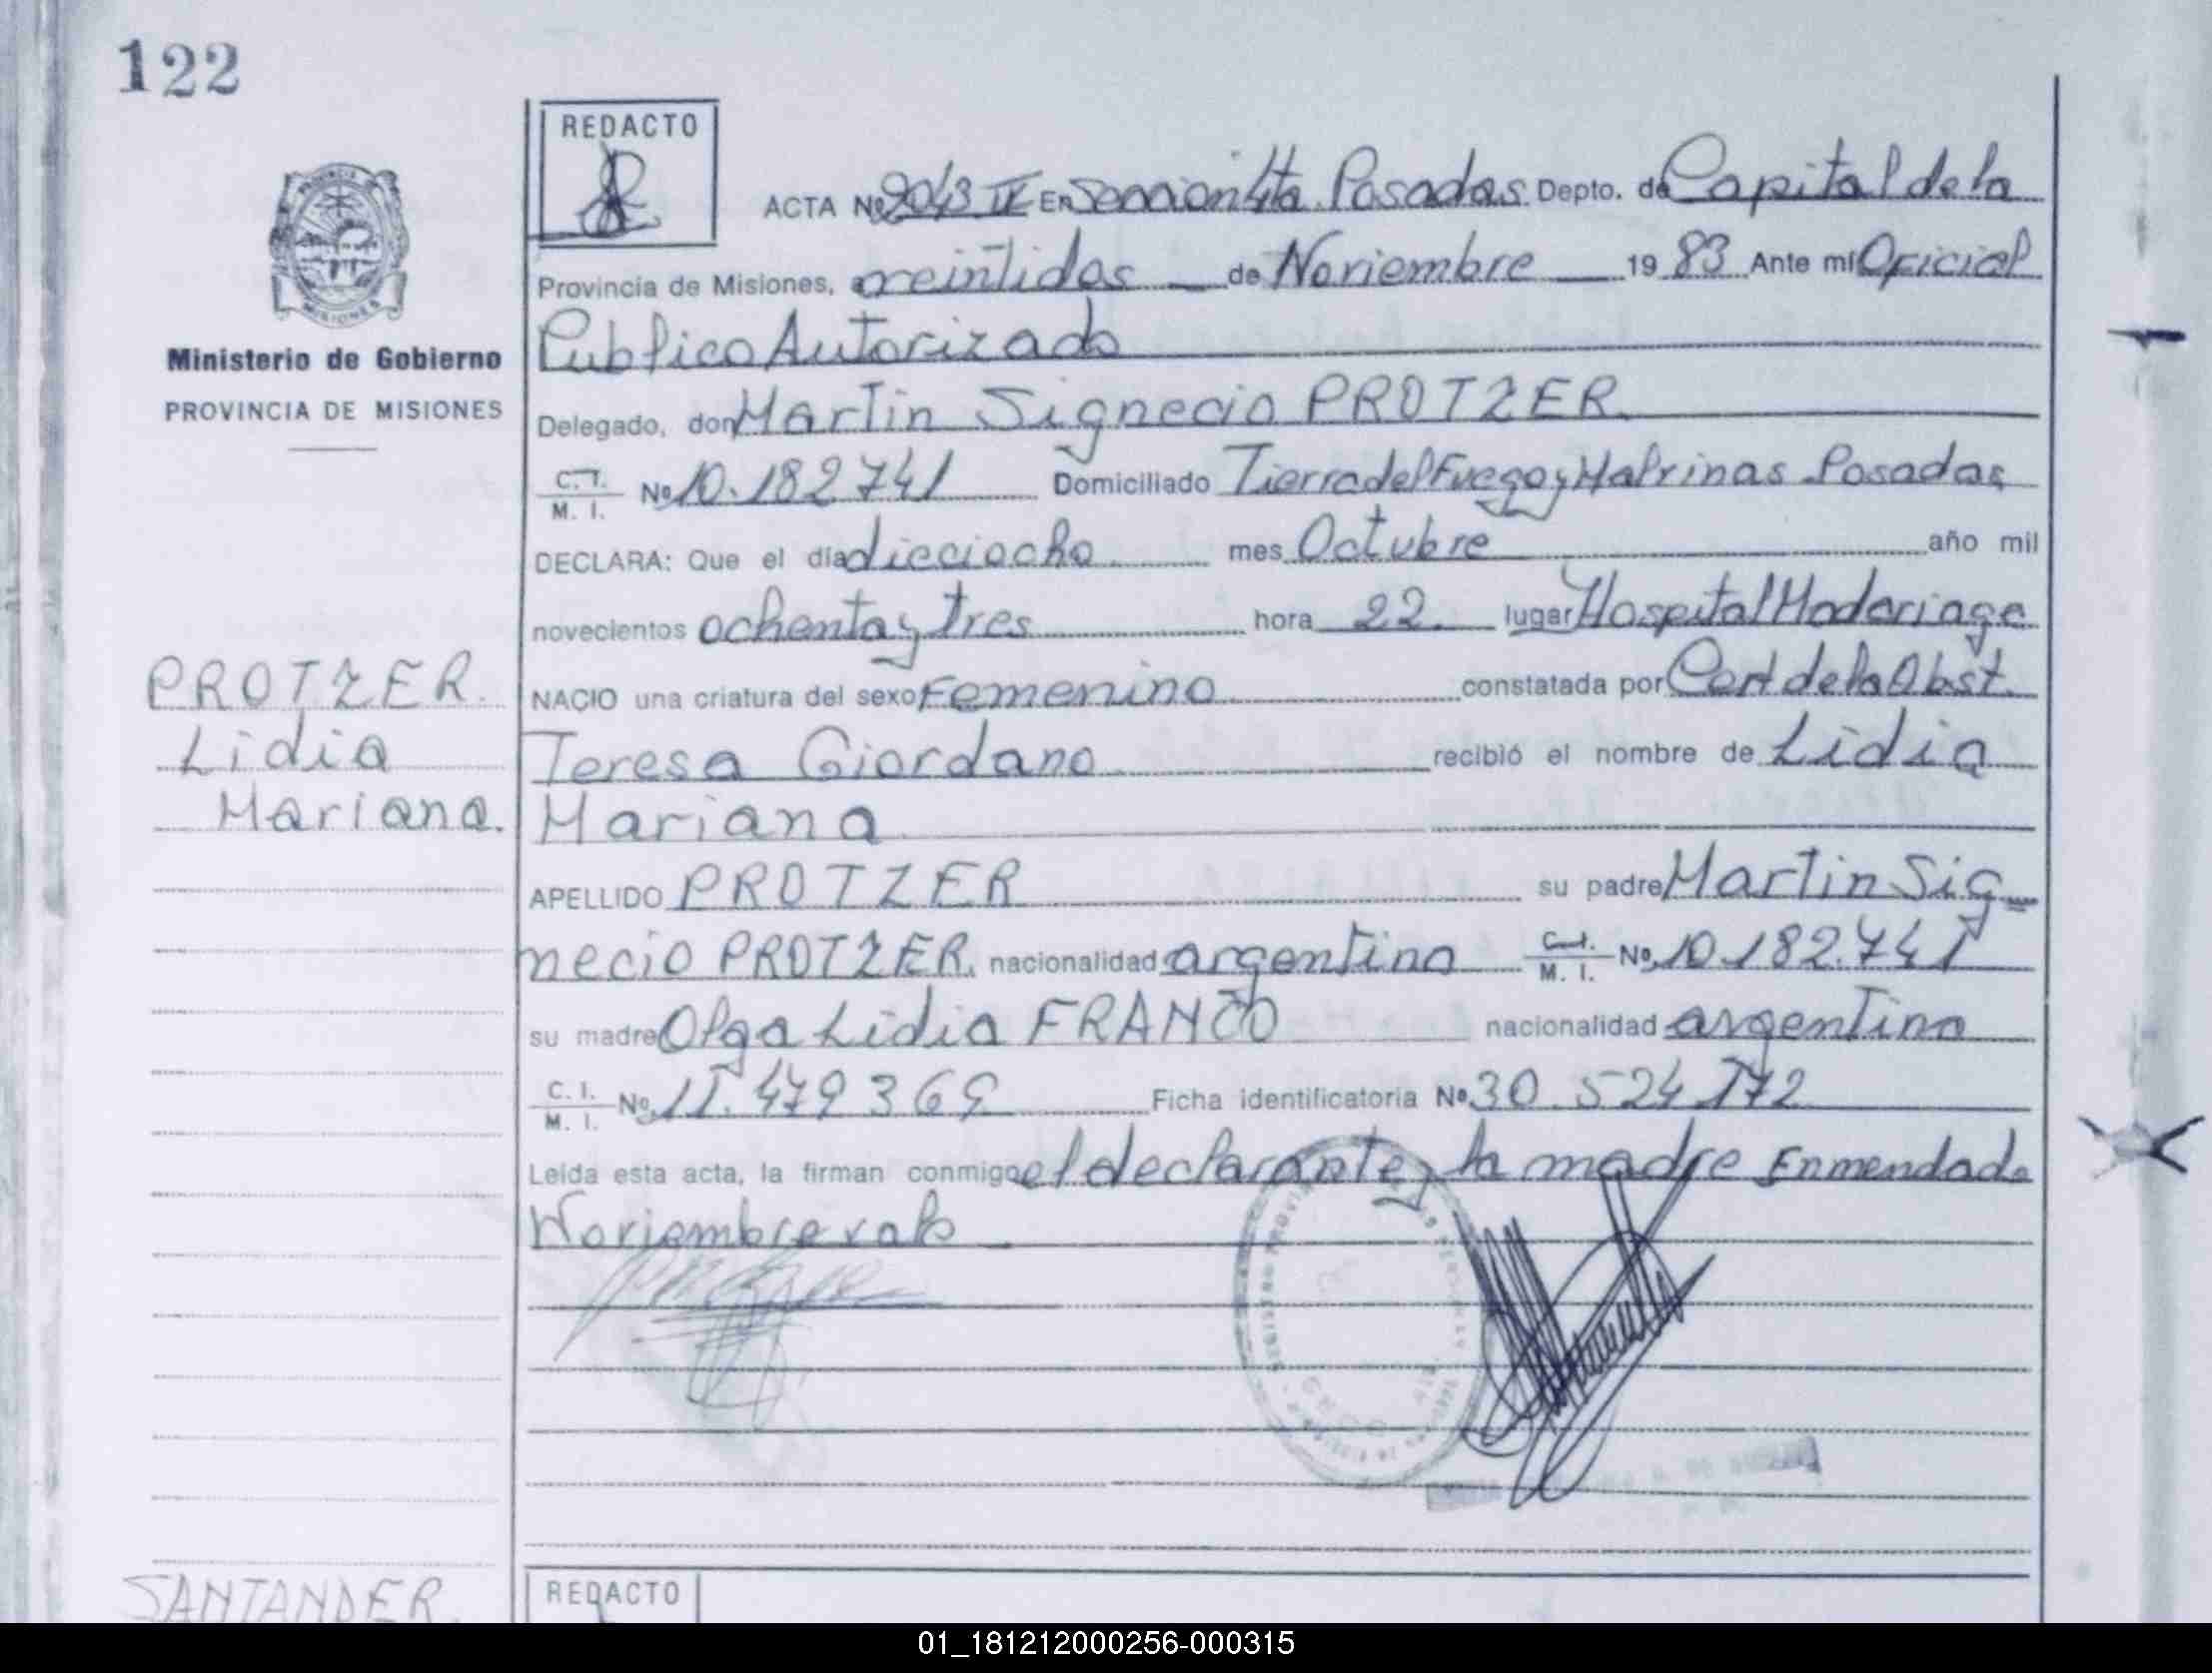 122
REDACTO
ACTA Nº 2043 IV En Sección 4ta Posadas Depto. de Capital de la
Provincia de Misiones, a veintidos de Noviembre 1983 Ante mí Oficial
Publico Autorizado
Ministerio de Gobierno
PROVINCIA DE MISIONES
Delegado, don Martin Signecio PROTZER
C. I. M. I. Nº 10.182741 Domiciliado Tierra del Fuego y Malvinas Posadas
DECLARA: Que el día dieciocho mes Octubre año mil
novecientos ochenta y tres hora 22 lugar Hospital Madariaga
PROTZER.
Lidia
Mariana.
NACIO una criatura del sexo Femenino constatada por Cert de la Obst.
Teresa Giordano recibió el nombre de Lidia
Mariana
APELLIDO PROTZER su padre Martin Sig
necio PROTZER. nacionalidad argentino C. I. M. I. Nº 10.182.741
su madre Olga Lidia FRANCO nacionalidad argentina
C. I. M. I. Nº 11.479369 Ficha identificatoria Nº 30.524172
Leída esta acta, la firman conmigo el declarante y la madre Enmendado
Noviembre vale
SANTANDER.
REDACTO
01_181212000256-000315